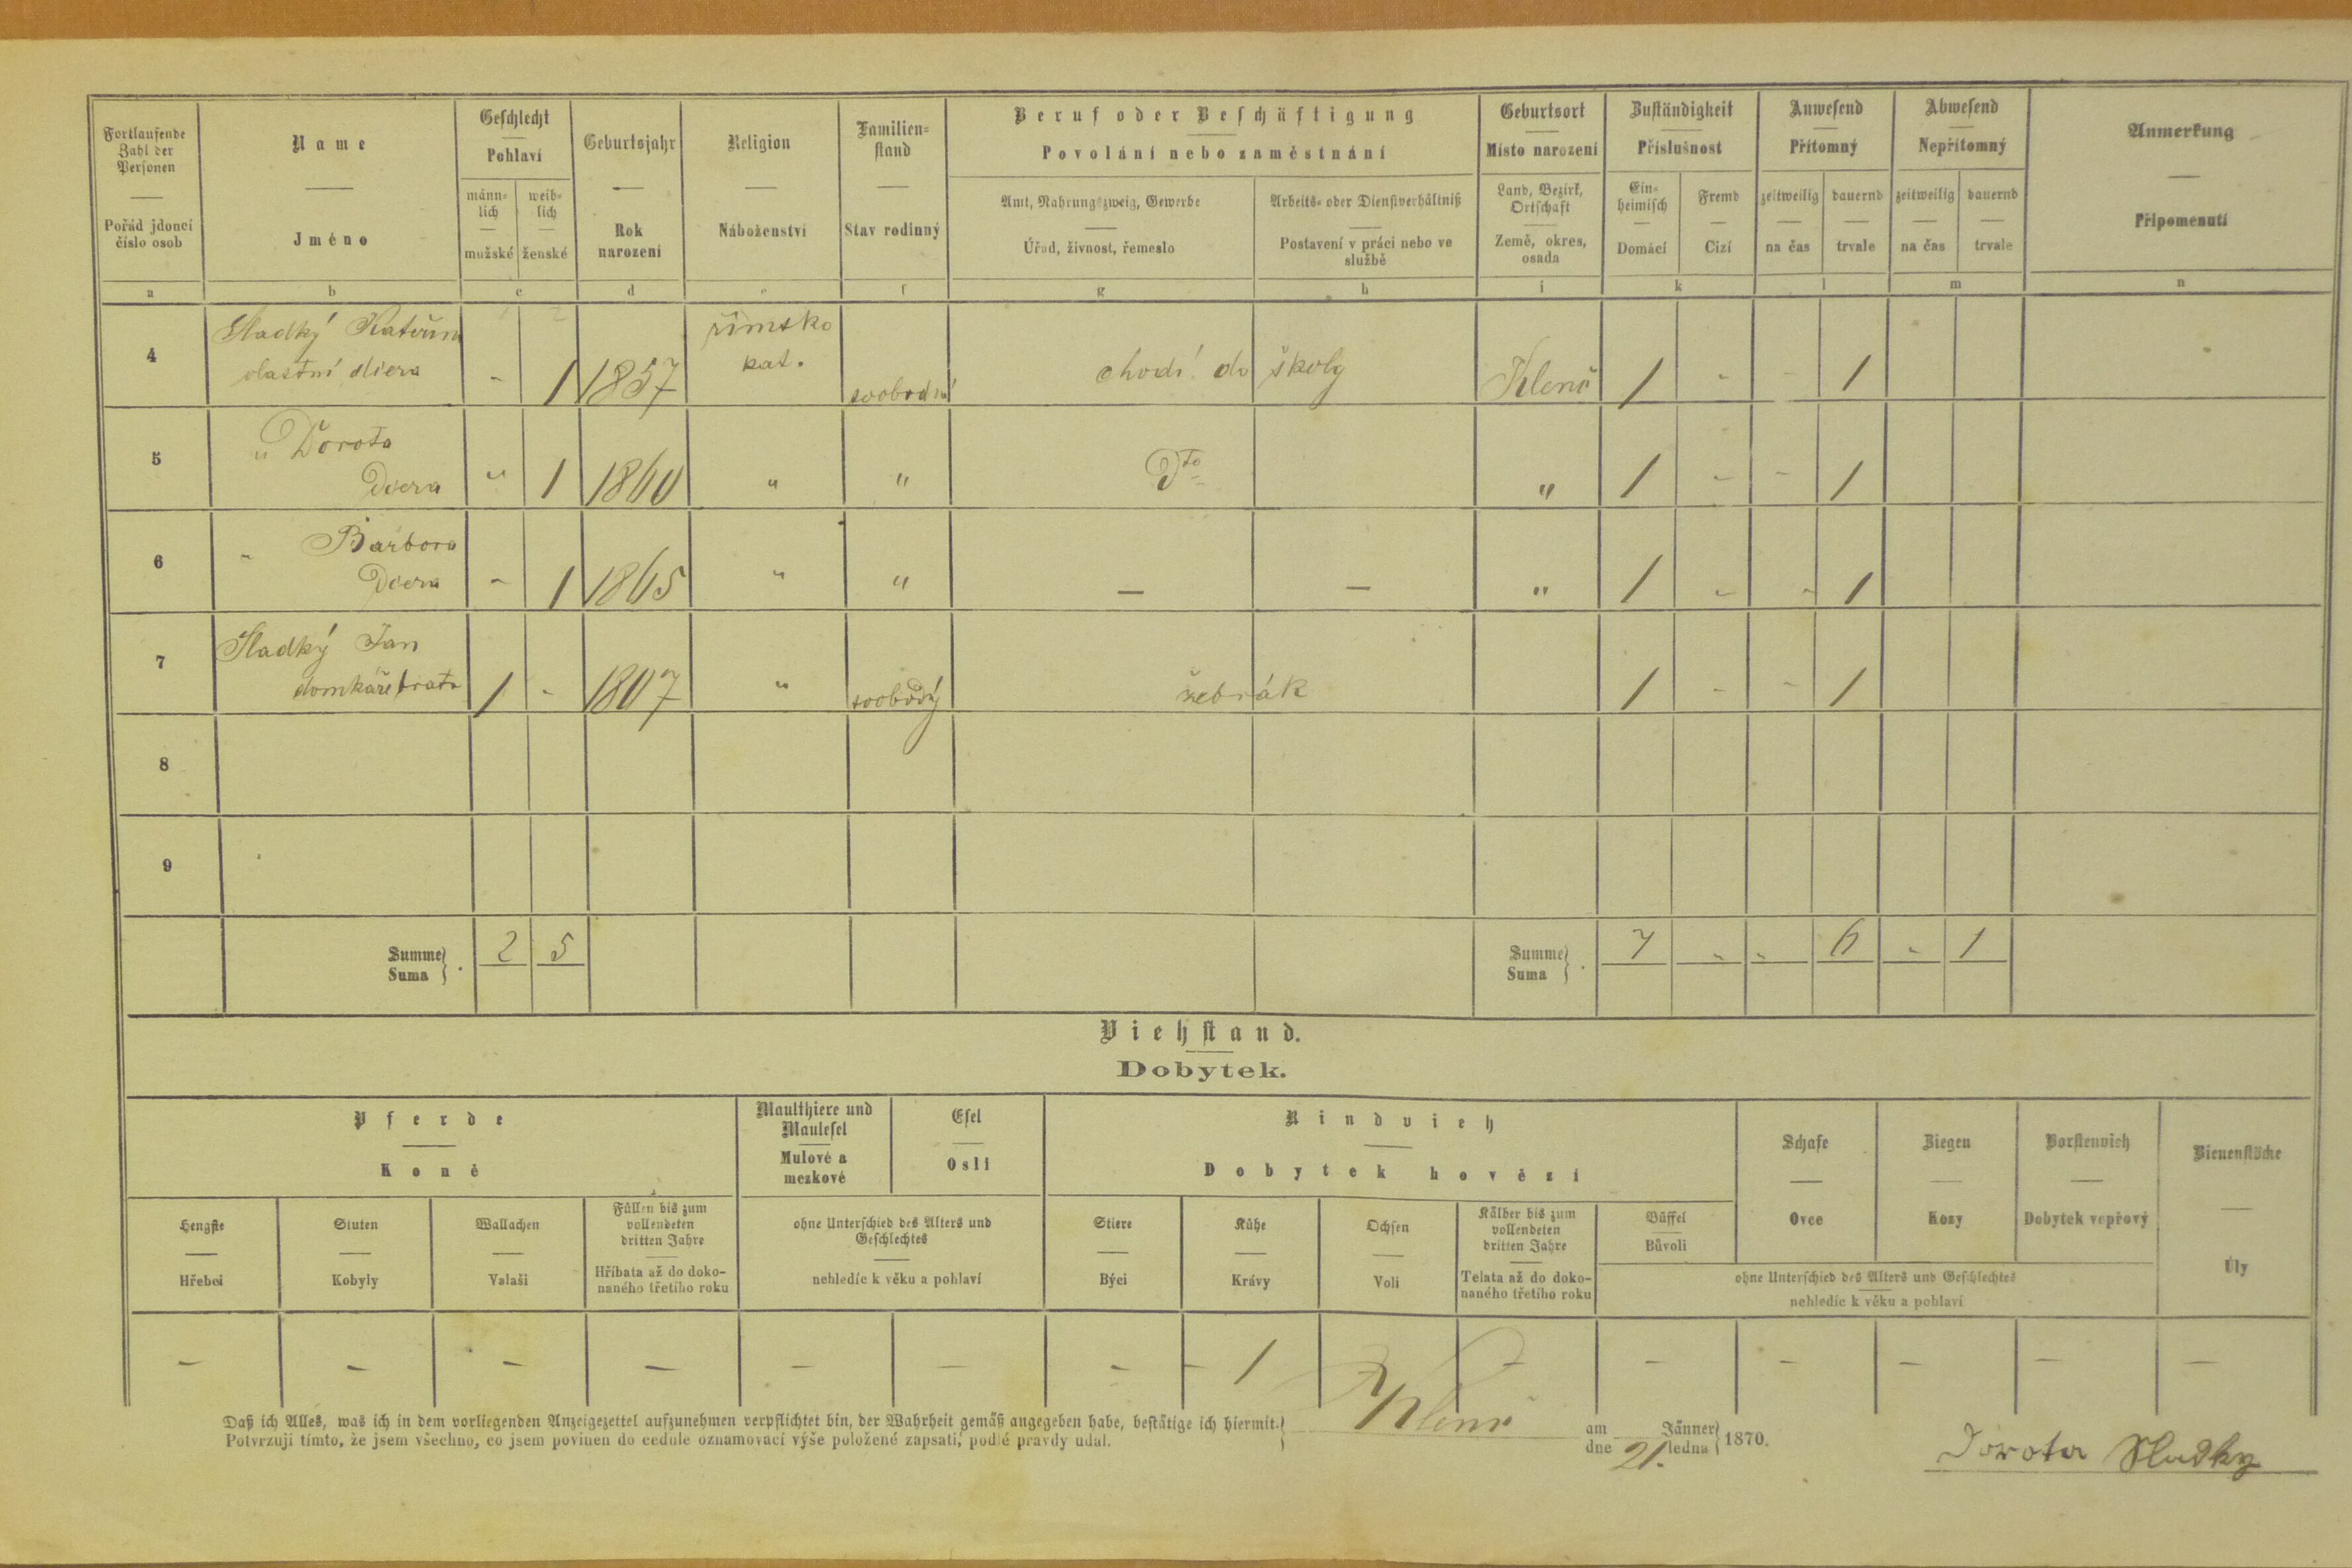 Fortlaufende Zahl der Personen — Pořád jdoucí číslo osob
Name — Jméno
Geschlecht — Pohlaví
männlich — mužské
weiblich — ženské
Geburtsjahr — Rok narození
Religion — Náboženství
Familienstand — Stav rodinný
Beruf oder Beschäftigung — Povolání nebo zaměstnání
Amt, Nahrungszweig, Gewerbe — Úřad, živnost, řemeslo
Arbeits- oder Dienstverhältniß — Postavení v práci nebo ve službě
Geburtsort — Místo narození
Land, Bezirk, Ortschaft — Země, okres, osada
Zuständigkeit — Příslušnost
Einheimisch — Domácí
Fremd — Cizí
Anwesend — Přítomný
zeitweilig — na čas
dauernd — trvale
Abwesend — Nepřítomný
zeitweilig — na čas
dauernd — trvale
Anmerkung — Připomenutí
a b c d e f g h i k l m n
4 Sladký Kateřina vlastní dcera - 1 1857 římsko kat. svobodná chodí do školy Klenč 1 - - 1
5 " Dorota Dcera " 1 1860 " " Dto " 1 - - 1
6 " Barbora Dcera - 1 1865 " " — — " 1 - - 1
7 Sladký Jan domkáře bratr 1 - 1807 " svobodný žebrák 1 - - 1
8
9
Summe Suma } . 2 5 Summe Suma } . 7 " " 6 " 1
Viehstand.
Dobytek.
Pferde — Koně
Maulthiere und Maulesel — Mulové a mezkové
Esel — Osli
Rindvieh — Dobytek hovězí
Schafe — Ovce
Ziegen — Kozy
Borstenvieh — Dobytek vepřový
Bienenstöcke — Úly
Hengste — Hřebci
Stuten — Kobyly
Wallachen — Valaši
Füllen bis zum vollendeten dritten Jahre — Hříbata až do dokonaného třetího roku
ohne Unterschied des Alters und Geschlechtes — nehledíc k věku a pohlaví
Stiere — Býci
Kühe — Krávy
Ochsen — Voli
Kälber bis zum vollendeten dritten Jahre — Telata až do dokonaného třetího roku
Büffel — Bůvoli
ohne Unterschied des Alters und Geschlechtes — nehledíc k věku a pohlaví
— — — — — — — 1 — — — — —
Daß ich Alles, was ich in dem vorliegenden Anzeigezettel aufzunehmen verpflichtet bin, der Wahrheit gemäß angegeben habe, bestätige ich hiermit.
Potvrzuji tímto, že jsem všechno, co jsem povinen do cedule oznamovací výše položené zapsati, podlé pravdy udal.
Klenč am dne 21. Jänner ledna 1870.
Dorota Sladky